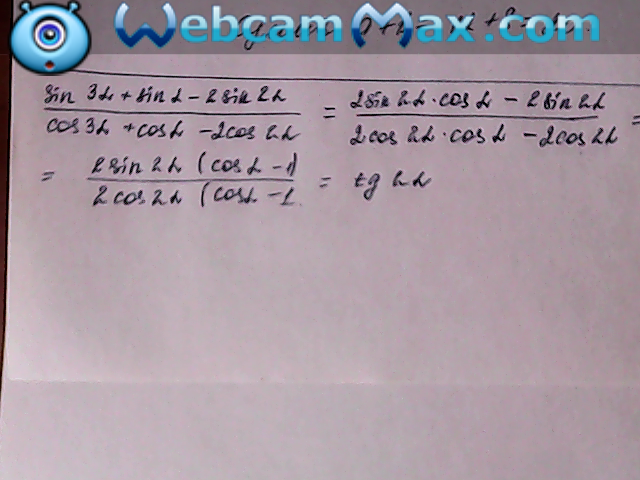 WebcamMax.com
sin 3α + sin α - 2 sin 2α / cos 3α + cos α - 2 cos 2α = 2 sin 2α · cos α - 2 sin 2α / 2 cos 2α · cos α - 2 cos 2α =
= 2 sin 2α (cos α - 1) / 2 cos 2α (cos α - 1 = tg 2α